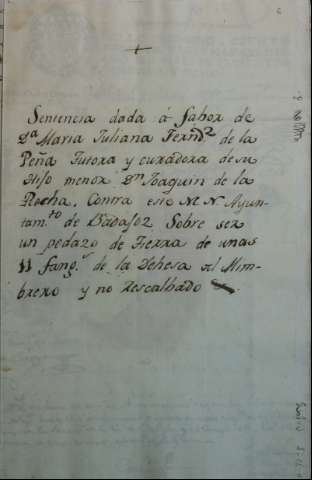 +
Sentencia dada á fabor de
Dª Maria Juliana Fernᵈᶻ de la
Peña Tutora y curadora de su
Hijo menor Dⁿ Joaquin de la
Rocha. Contra este M. N. Ayun-
tamᵗᵒ de Badajoz Sobre ser
un pedazo de Tierra de unas
11 fangˢ de la Dehesa del Mim-
brero y no Rescalbado